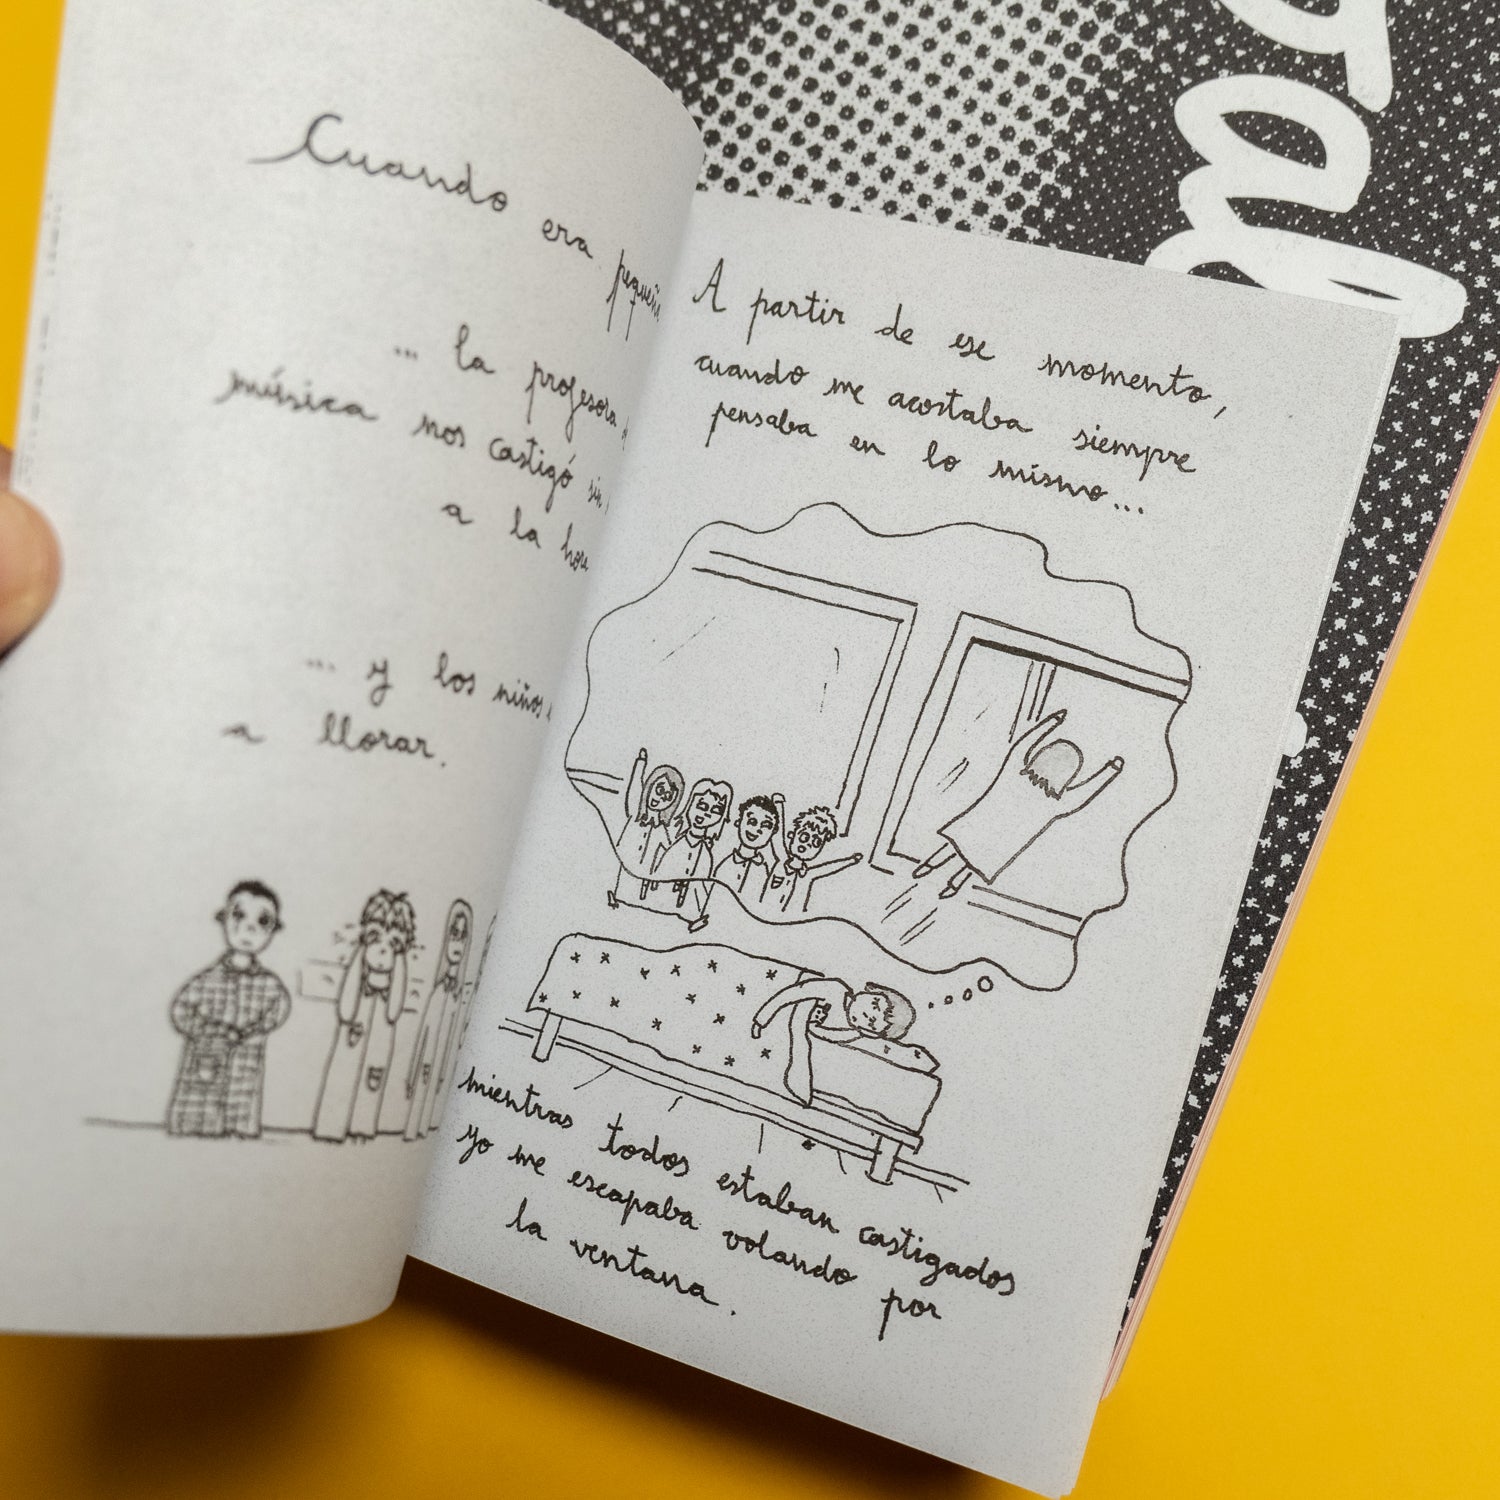 Cuando era pequeñ
... la profesora
música nos castigó sin
a la hora
... y los niños
a llorar.
A partir de ese momento,
cuando me acostaba siempre
pensaba en lo mismo...
mientras todos estaban castigados
yo me escapaba volando por
la ventana.